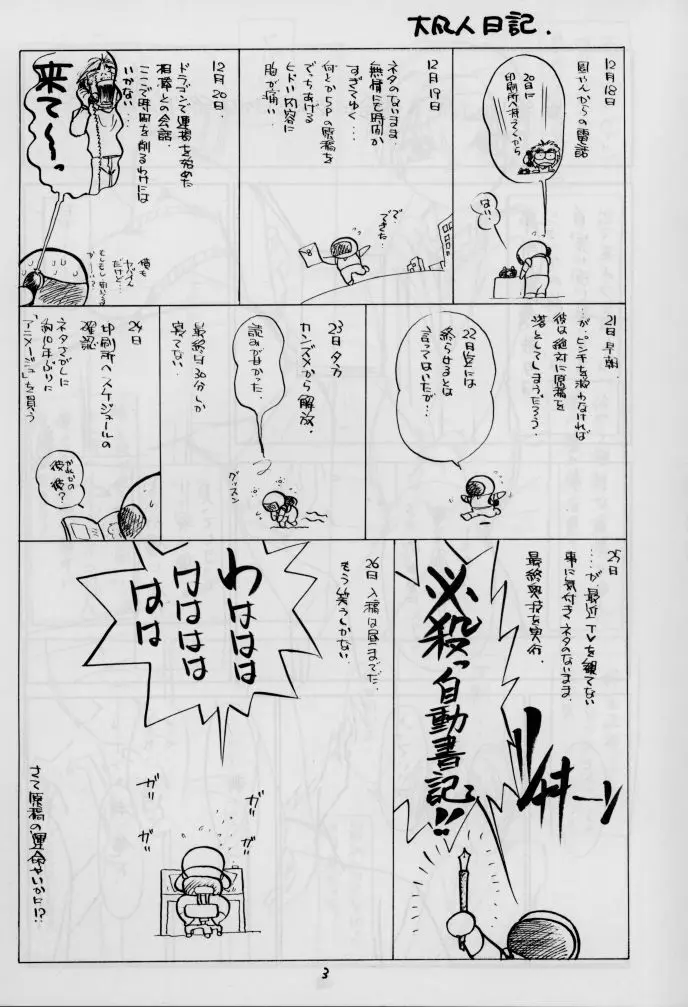 大凡人日記.
12月18日
周やんからの電話
20日に
印刷所へ持ってくから
はい.
12月19日
ネタのないまま
無情にも時間が
すぎてゆく…
何とか5Pの原稿を
でっちあげる
ヒドい内容に
胸が痛い.
で.
できた…
12月20日.
ドラゴンで連載を始めた
相棒との会話.
ここで時間を削るわけには
いかない…
来て〜っ
俺も
ヤバイん
だけど…
21日 早朝.
…が、ピンキを救わなければ
彼は絶対に原稿を
落としてしまうだろう.
22日
終らせるとは
言ってはいたが…
23日夕方
カンヅメから解放.
最終は30分しか
寝てない.
読みが甘かった.
グッスン
24日
印刷所へスケジュールの
確認.
ネタさがしに
約10年ぶりに
「アニメージュ」を買う
彼彼?
25日
……が、最近TVを観てない
事に気付き、ネタのないまま.
最終奥技を実行.
必殺っ自動書記!!
26日 入稿は昼までだ.
もう笑うしかない.
わははは
はははは
はは
ガガガガ
さて原稿の運命やいかに!?
3